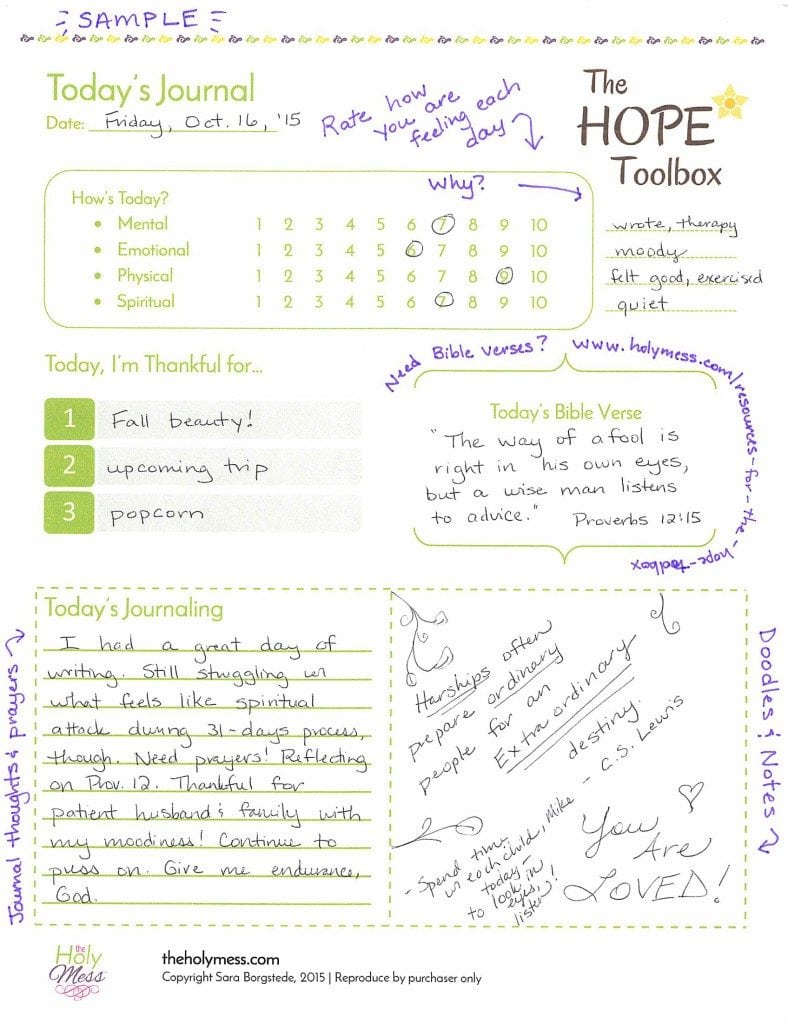 SAMPLE
Today's Journal
Date: Friday, Oct. 16, '15
Rate how
you are
feeling each
day
The
HOPE
Toolbox
Why?
How's Today?
• Mental 1 2 3 4 5 6 7 8 9 10
wrote, therapy
• Emotional 1 2 3 4 5 6 7 8 9 10
moody
• Physical 1 2 3 4 5 6 7 8 9 10
felt good, exercised
• Spiritual 1 2 3 4 5 6 7 8 9 10
quiet
Today, I'm Thankful for...
1 Fall beauty!
2 upcoming trip
3 popcorn
Need Bible verses? www.holymess.com/resources-for-the-hope-toolbox
Today's Bible Verse
"The way of a fool is
right in his own eyes,
but a wise man listens
to advice." Proverbs 12:15
Journal thoughts & prayers
Today's Journaling
I had a great day of
writing. Still struggling w
what feels like spiritual
attack during 31-days process,
though. Need prayers! Reflecting
on Prov. 12. Thankful for
patient husband & family with
my moodiness! Continue to
puss on. Give me endurance,
God.
Harships often
prepare ordinary
people for an
Extraordinary
destiny.
- C.S. Lewis
- Spend time
w each child, Mike
today -
to look in
eyes, !
listen
You
Are
LOVED!
Doodles & Notes
the
Holy
Mess
theholymess.com
Copyright Sara Borgstede, 2015 | Reproduce by purchaser only